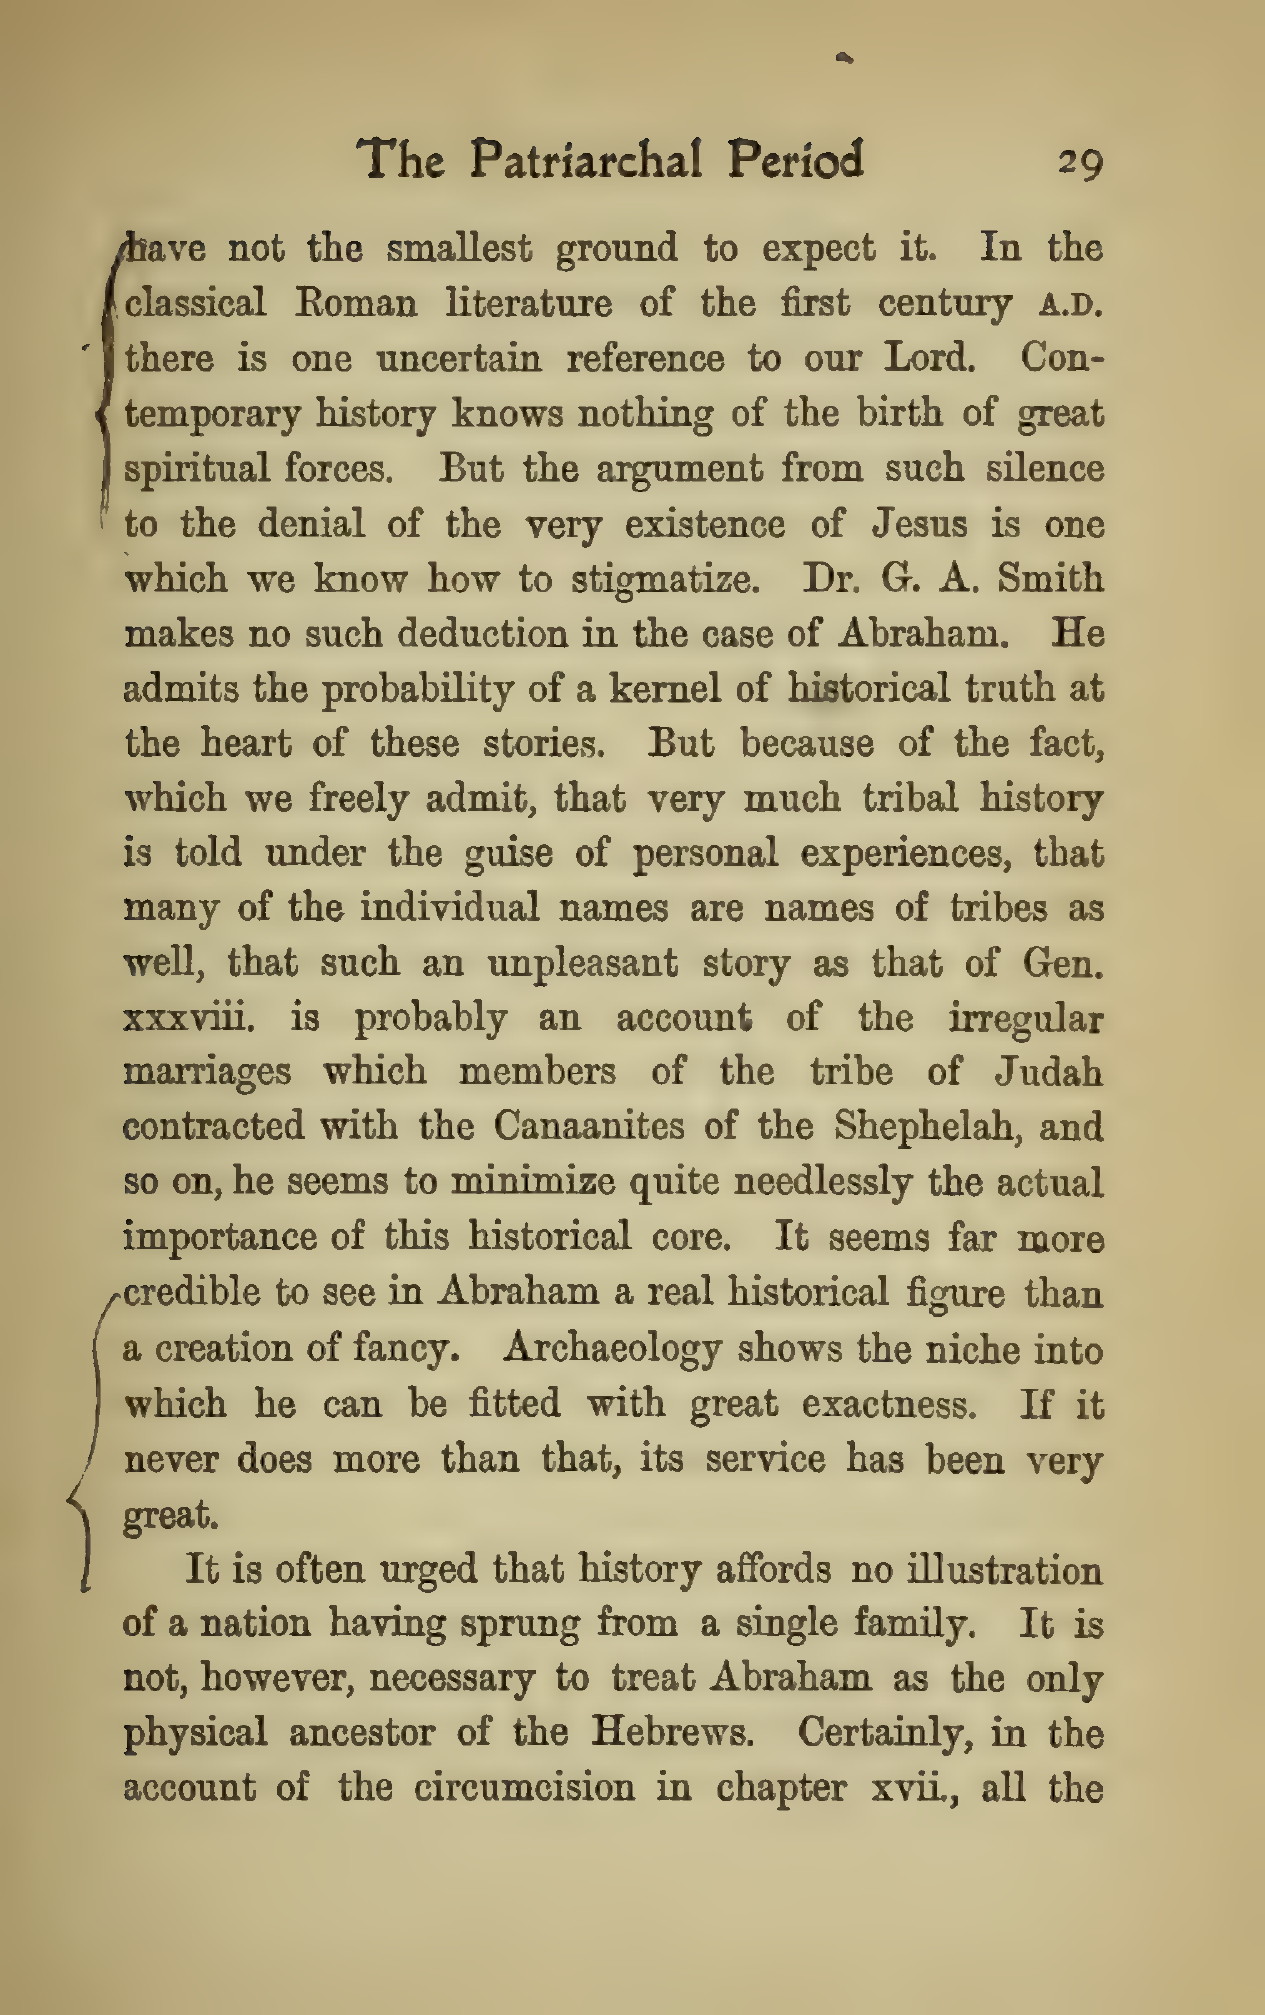 The Patriarchal Period 29
have not the smallest ground to expect it. In the
classical Roman literature of the first century A.D.
there is one uncertain reference to our Lord. Con-
temporary history knows nothing of the birth of great
spiritual forces. But the argument from such silence
to the denial of the very existence of Jesus is one
which we know how to stigmatize. Dr. G. A. Smith
makes no such deduction in the case of Abraham. He
admits the probability of a kernel of historical truth at
the heart of these stories. But because of the fact,
which we freely admit, that very much tribal history
is told under the guise of personal experiences, that
many of the individual names are names of tribes as
well, that such an unpleasant story as that of Gen.
xxxviii. is probably an account of the irregular
marriages which members of the tribe of Judah
contracted with the Canaanites of the Shephelah, and
so on, he seems to minimize quite needlessly the actual
importance of this historical core. It seems far more
credible to see in Abraham a real historical figure than
a creation of fancy. Archaeology shows the niche into
which he can be fitted with great exactness. If it
never does more than that, its service has been very
great.
It is often urged that history affords no illustration
of a nation having sprung from a single family. It is
not, however, necessary to treat Abraham as the only
physical ancestor of the Hebrews. Certainly, in the
account of the circumcision in chapter xvii., all the